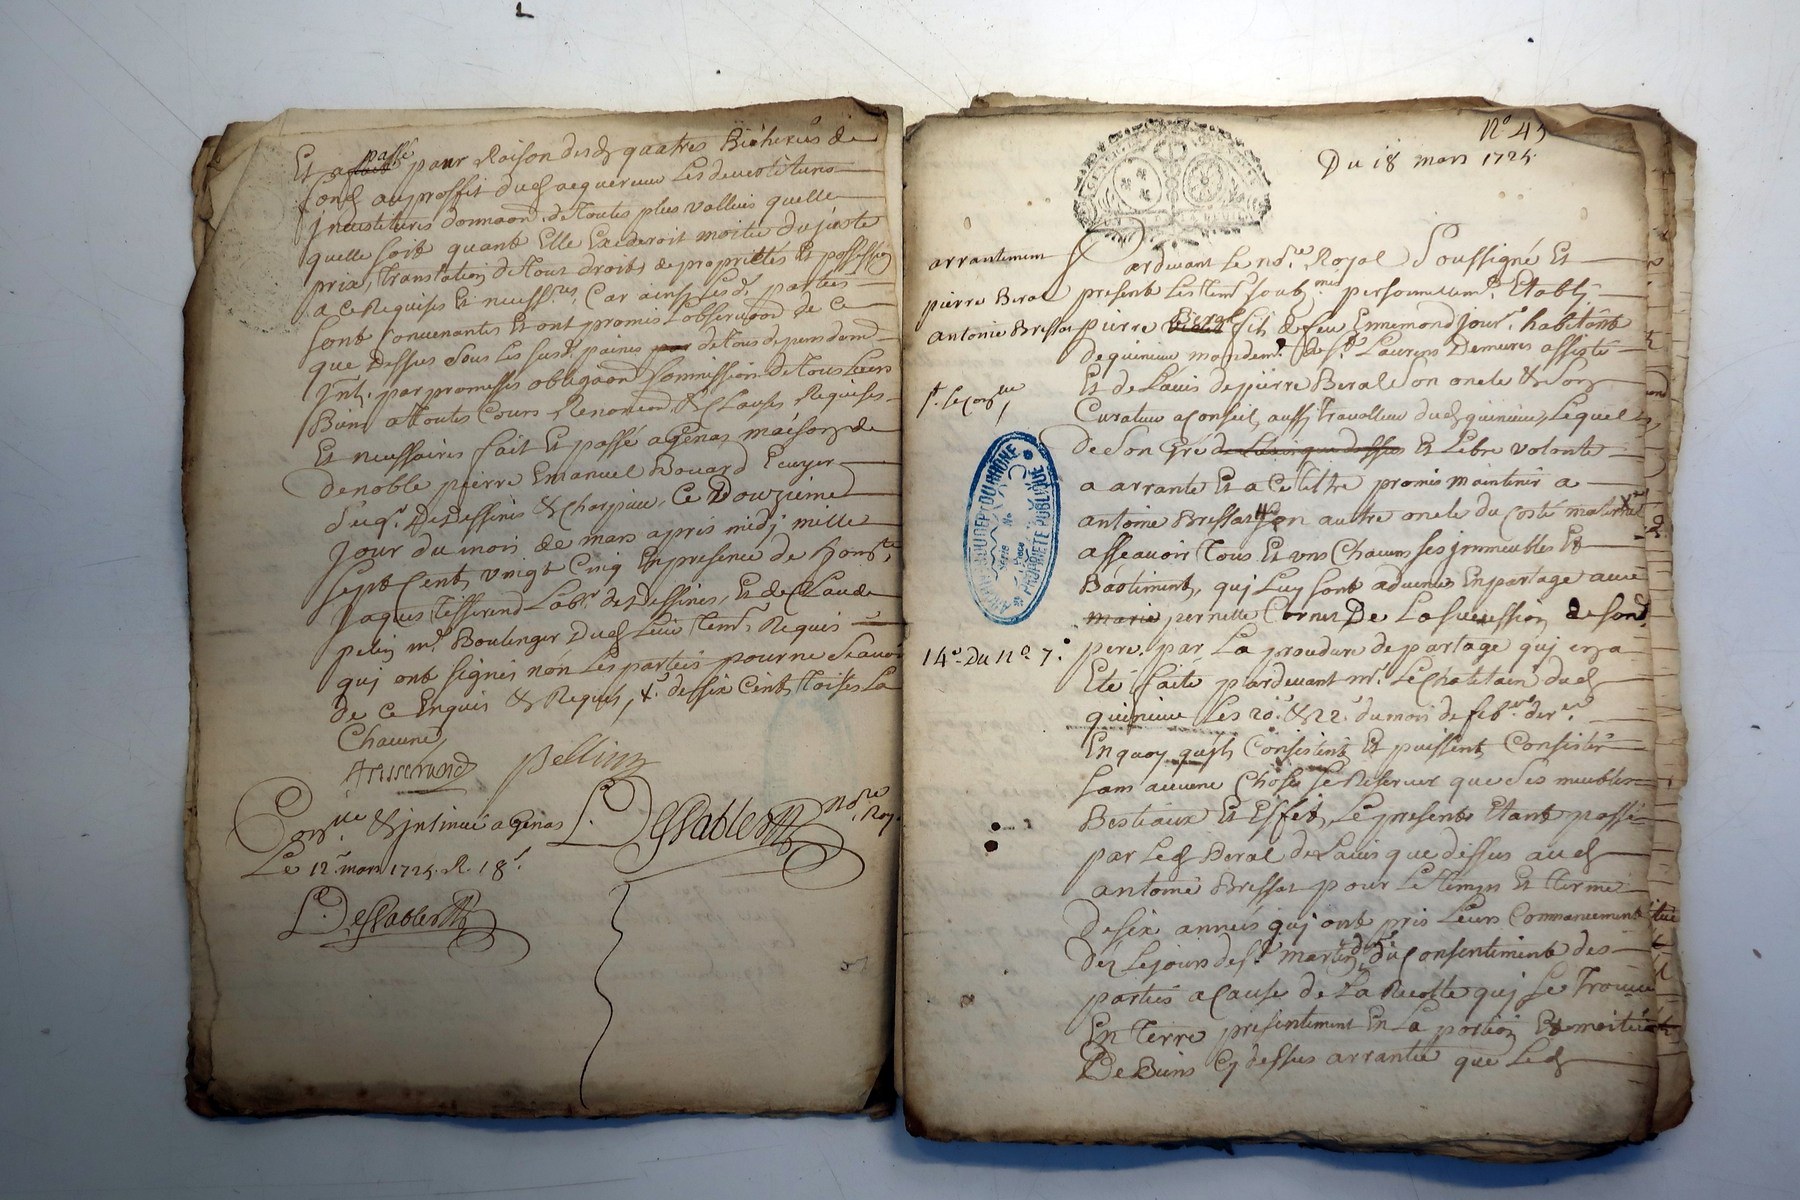 Et a passé pour Raison desd quatres Bicherés de
fond au proffit dud acquereur Les devestitures
Investitures donnaon de toutes plus vallues quelle
quelle soit quant Elle Excederoit moitié du juste
prix, translation de tous droits de proprietés Et possession
a ce Requises Et necessres, Car ainsy Lesd. parties
sont Convenantes Et ont promis L'observaon de ce
que Dessus sous Les susd. paines de tous depens dom
Intz. par promesses obligaon soumission de tous Leurs
Biens a toutes Cours Renonciaon & Clauses Requises
Et necessaires fait Et passé a Genas maison de
de noble pierre Emanuel Bouard Ecuyer
Seigr. De Dessines & Charpieu, Ce Douzieme
Jour du mois de mars apres midy mille
sept Cents vingt Cinq En presence de honste
Jaques Tisserand Labr. de Dessines, Et de Claude
pelin mr. Boulinger Dud Lieu tems. Requis
quj ont signés non Les parties pour ne Scavoir
de ce Enquis & Requis, de six Cents Toises La
Chacune
Tisserand Pellin
L. DesSables Nore. Roy.
Conlle & jnsinué a Genas
Le 12e mars 1725. R. 18s
L. DesSables
No 43
Du 18 mars 1725.
arrantement
pierre Beral
antoine Bressat
14e. Du No. 7.
Pardevant Le nore. Royal Soussigné Et
present Les tem. soubnes personnellemt. Etably
pierre Beral fils de feu Ennemond Jourr. habitant
de quinieux mandemt. de St. Laurens Demeures assisté
Et de L'avis de pierre Beral Son oncle & Son
Curateur a Conseil, aussy Travailleur dud quinieux, Lequel
de Son Gré de L'avis que dessus Et Libre volonté
a arranté Et a Ce tittre promis maintenir a
antoine Bressat Son autre oncle du Costé maternel
assavoir Tous Et uns Chacuns ses jmmeubles Et
Bastiments, quj Luy sont advenus En partage avec
marie pernette Cornet De La succession de son
pere, par La procedure de partage quj en a
Eté faite pardevant mr. Le Chatelain dud
quinieux Les 20e. & 22e. du mois de febver. derer.
En quoy quils Consistent Et puissent Consister
sans aucune Chose se Reserver que ses meubles
Bestiaux Et Effets, Le present Etant passé
par Led Beral de L'avis que dessus aud
antoine Bressat pour Le tems Et terme
de six années quj ont pris Leurs Commancement
dez Le jour de St. martin du Consentiment des
parties a Cause de La Recolte quj se Trouve
En Terre presentement En La portion Et moitié
De Biens Cy dessus arrantée que Led
ARCHIVES DU DEPT DU RHÔNE
PROPRIÉTÉ PUBLIQUE